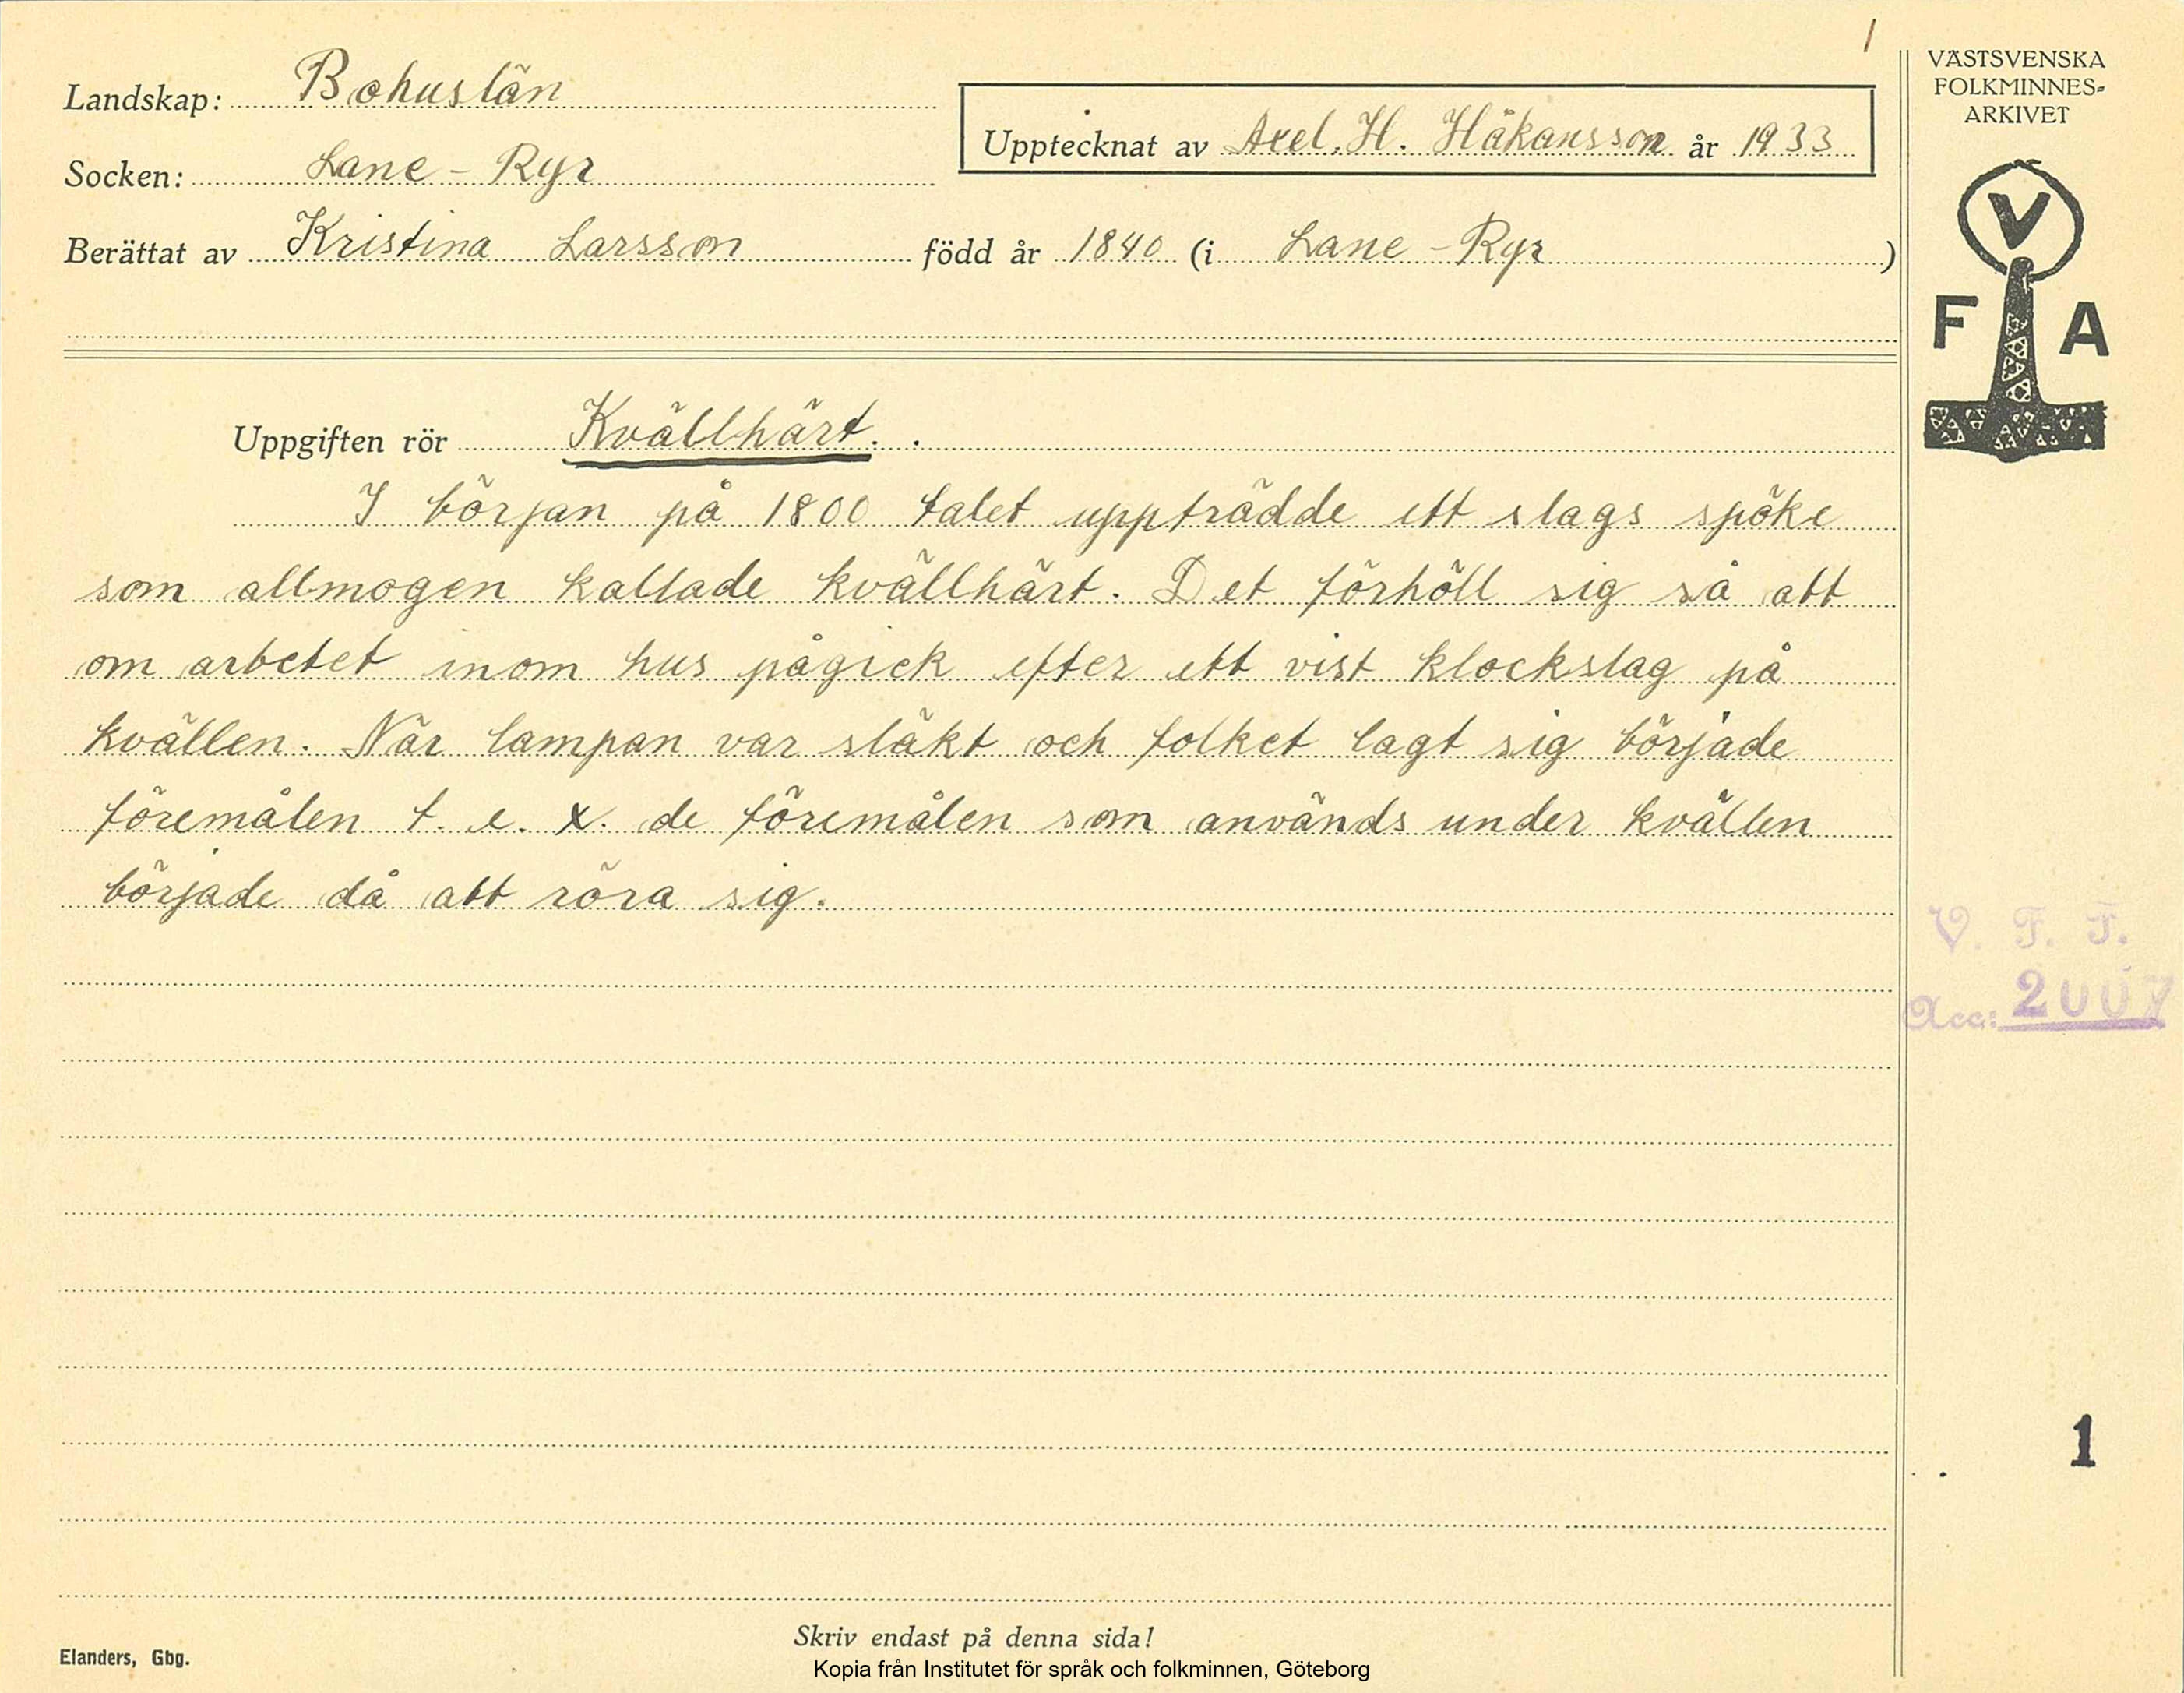 1
Landskap: Bohuslän
Socken: Lane-Ryr
Upptecknat av Axel. H. Håkansson år 1933
Berättat av Kristina Larsson född år 1840 (i Lane-Ryr)
VÄSTSVENSKA
FOLKMINNES-
ARKIVET
V
F A
Uppgiften rör Kvällhärt.
I början på 1800 talet uppträdde ett slags spöke
som allmogen kallade kvällhärt. Det förhöll sig så att
om arbetet inom hus pågick efter ett vist klockslag på
kvällen. När lampan var släkt och folket lagt sig började
föremålen t. e. x. de föremålen som används under kvällen
började då att röra sig.
V. F. F.
Acc: 2007
1
Skriv endast på denna sida!
Elanders, Gbg.
Kopia från Institutet för språk och folkminnen, Göteborg